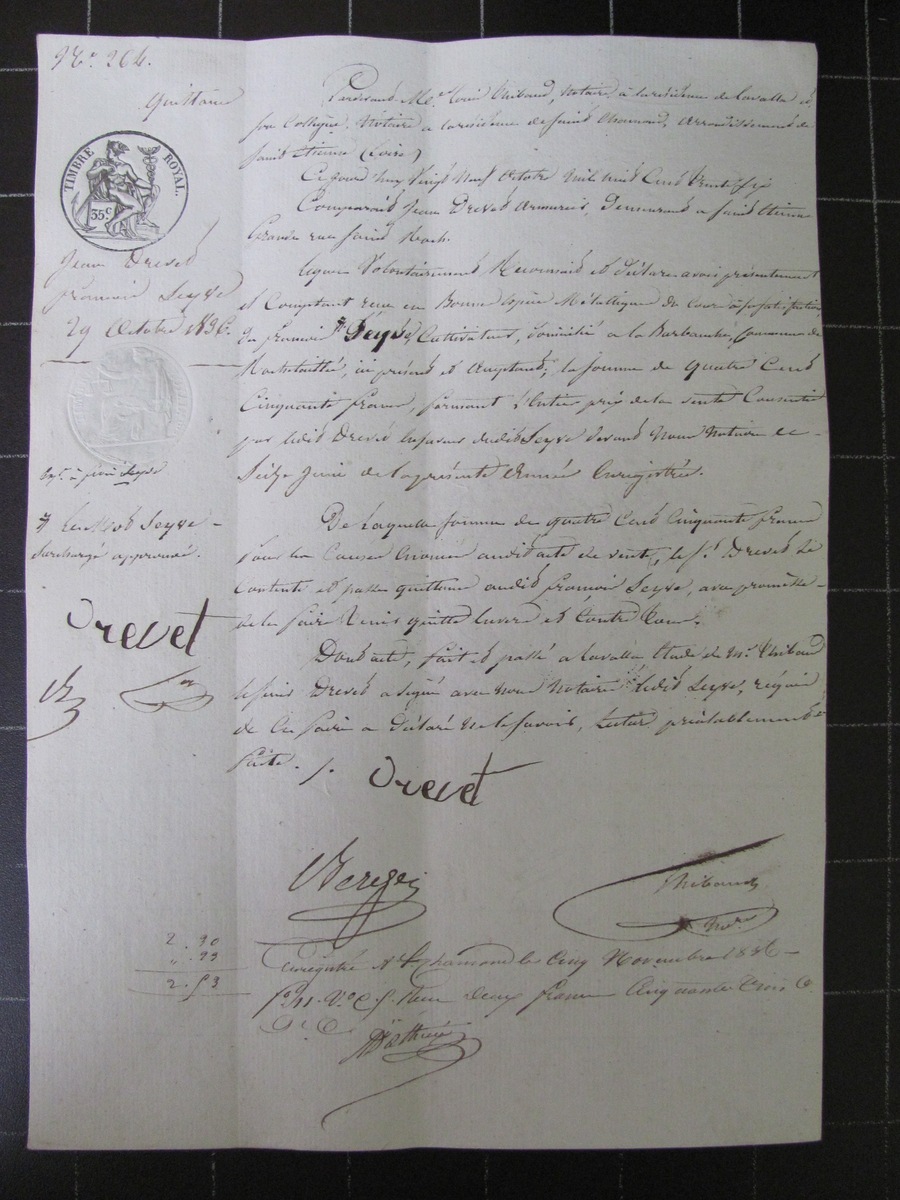 No. 264.
Quittance
TIMBRE ROYAL.
35 c
Jean Drevet
françois Seyve
29 Octobre 1836.
Exp. à françois Seyve
# Le mot Seyve
surchargé approuvé.
Drevet
Pardevant Me. Louis Thibaud, Notaire à la résidence de Lavalla et
son Collègue, Notaire à la résidence de Saint Chamond, Arrondissement de
Saint Etienne (Loire)
Cejourd'huy Vingt Neuf Octobre Mil huit Cent trente six
Comparait Jean Drevet armurier, Demeurant à Saint Etienne
Grande rue Saint Roch.
Lequel Volontairement Reconnait et déclare avoir présentement
et Comptant reçu en Bonne espèce Métallique du Cours à sa satisfaction
du françois # Seyve, Cultivateur, domicilié à la Barbanche, Commune de
Rochetaillée, ici présent et acceptant, la somme de Quatre Cent
Cinquante francs, formant l'Entier prix de la vente Consentie
par ledit Drevet en faveur dudit Seyve devant Nous Notaire le
Seize Juin de la présente Année Enregistrée.
De laquelle somme de quatre Cent Cinquante francs
pour les Causes énoncées audit acte de vente, le sr. Drevet se
Contente et passe quittance audit françois Seyve, avec promesse
de le faire tenir quitte Envers et Contre tous.
Dont acte, fait et passé à Lavalla Etude de Me. Thibaud
le sieur Drevet a signé avec Nous Notaire ledit Seyve, requis
de le faire a déclaré ne le savoir, Lecture préalablement
faite. /.
Drevet
Thibaud
Nore
2. 30
„. 23
2. 53
Enregistré à St Chamond le Cinq Novembre 1836
fo 111. Vo C. 5. Reçu deux francs Cinquante trois C